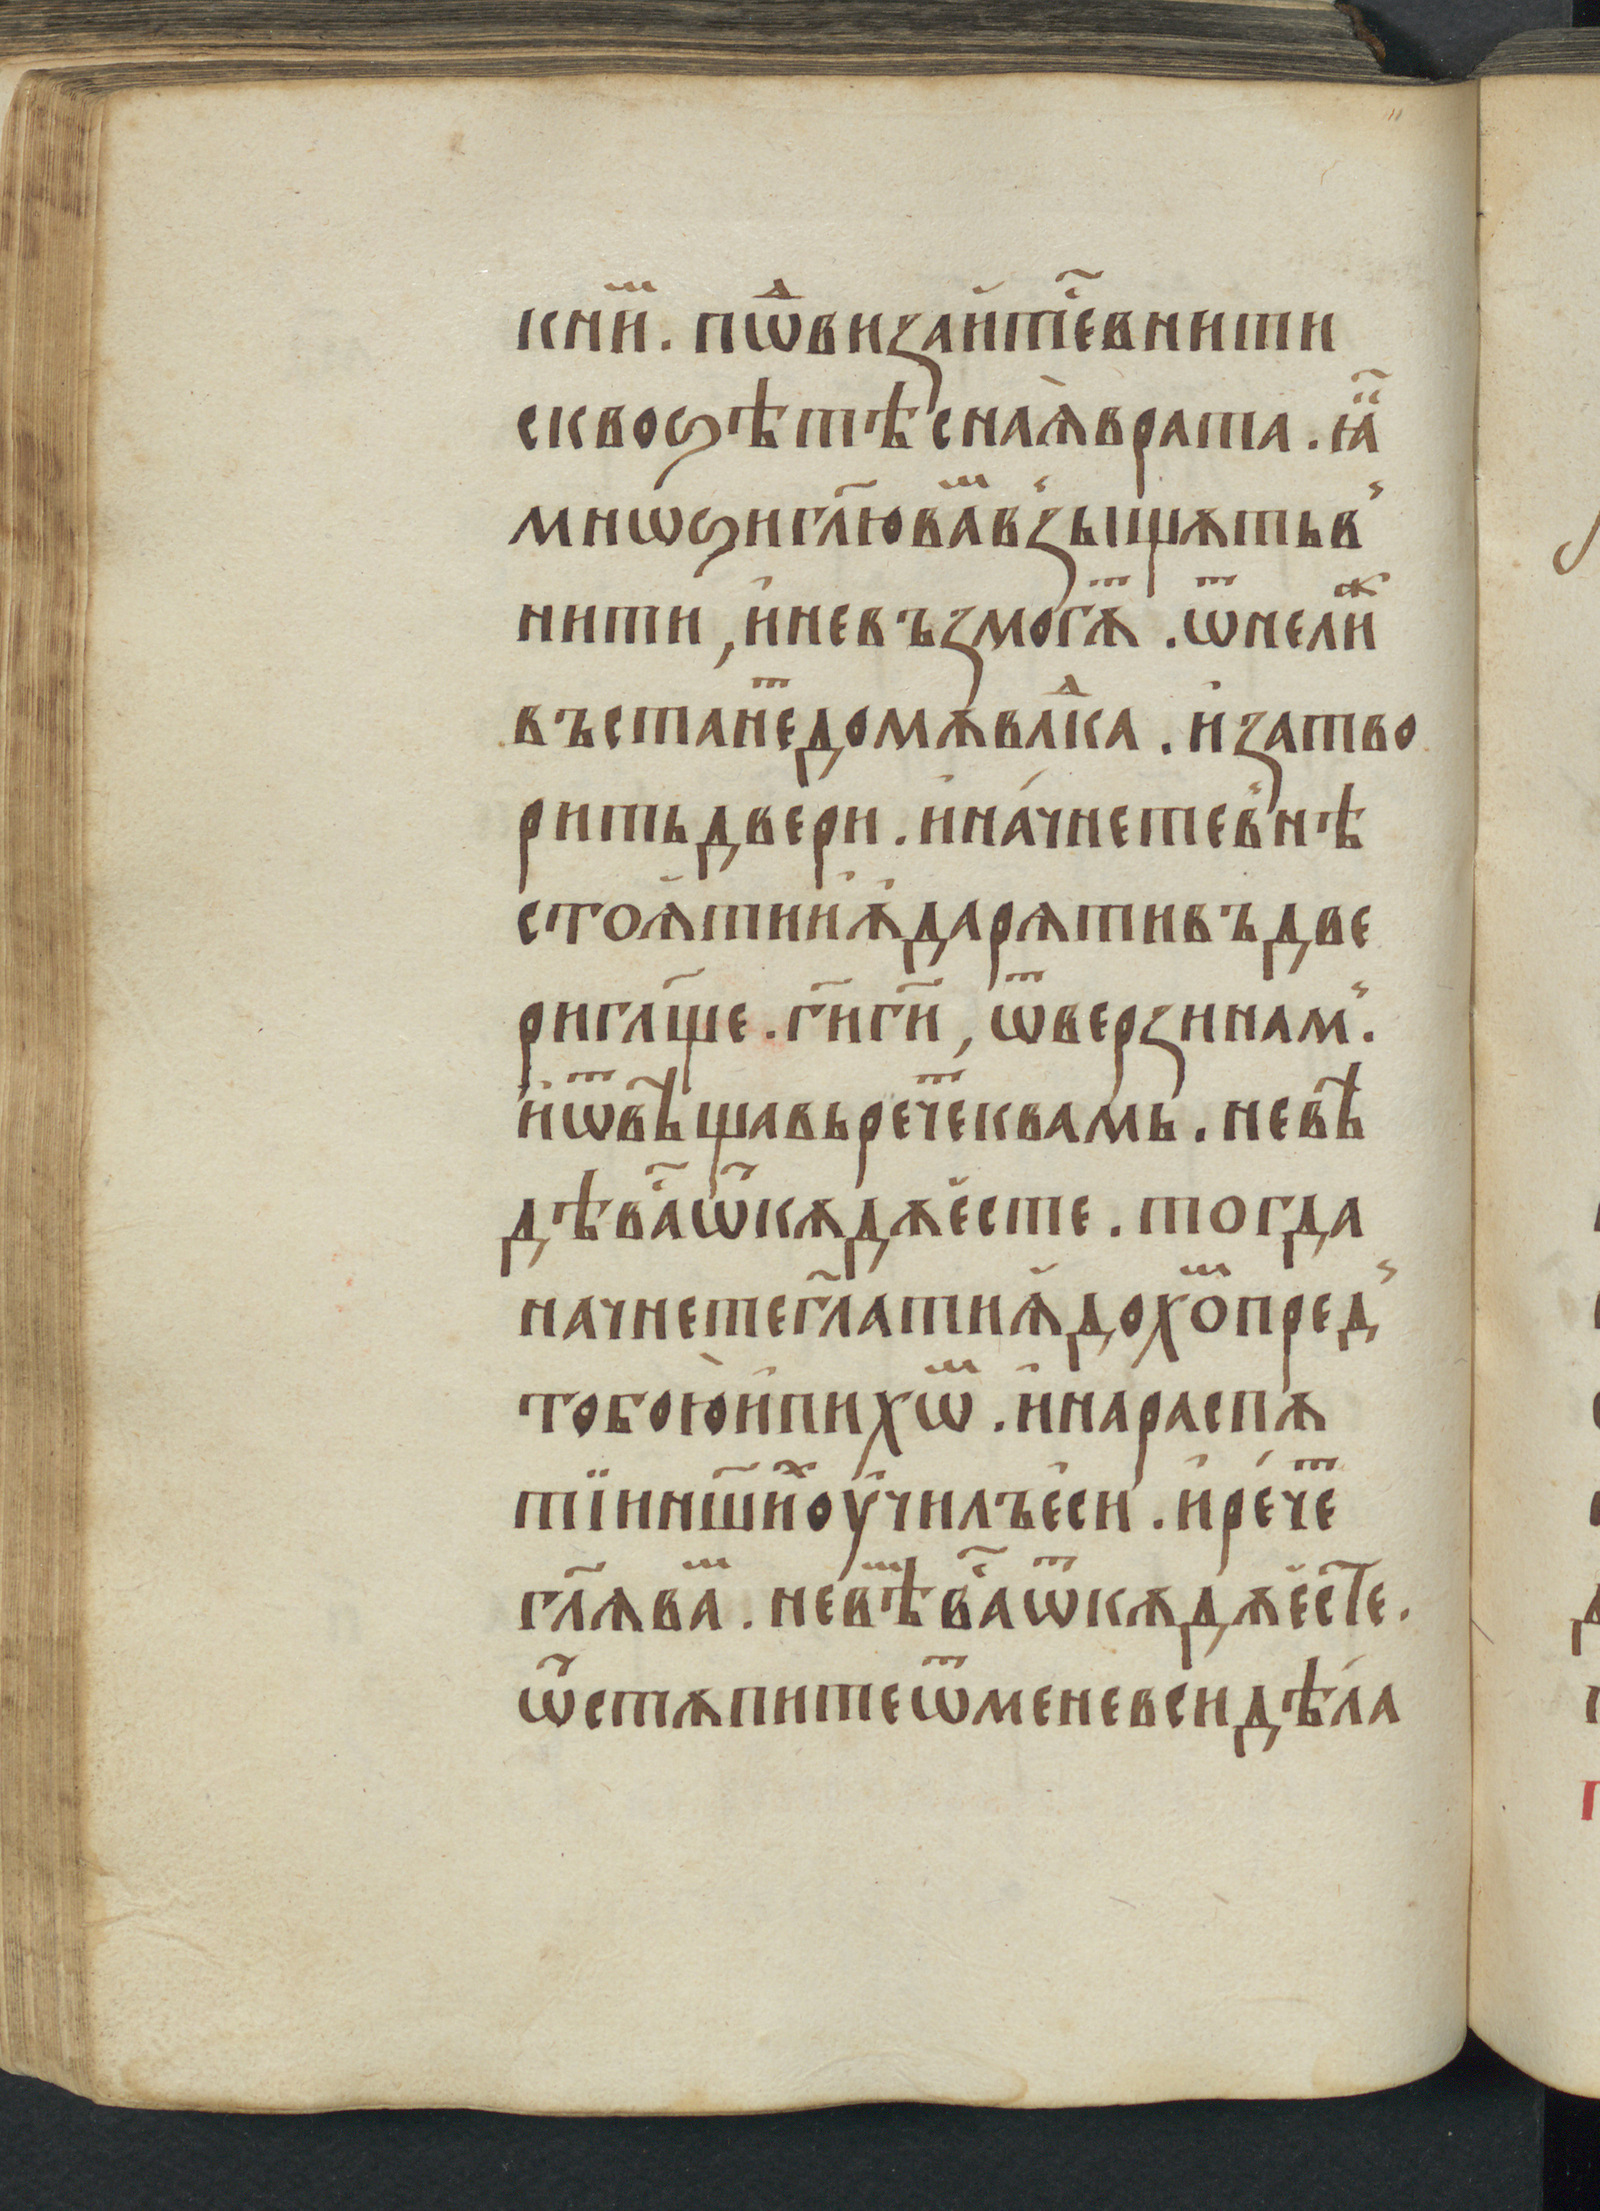 кни́ⷨ. пѡⷣвиꙁаи́тⷭ҇евнити
сквоѕѣтѣснаѧ̀врата. ꙗ҆̃
мнѡѕигл҃ювⷨавꙁ꙽ыщѫтьв꙽
нити, и҆невъꙁмогѫⷮ. ѿнели́ⷤ
въстанеⷮдомѫвлⷣка. и҆ꙁатво
ритьдвери. и҆на́чнетев҆нѣ
стоѧ҆тии҆ѫ҆дарѧтивъдве
риглщ҃е. ги҃ги҃, ѿверꙁинам꙽.
и҆ѿвѣщавьречеⷮквамь. невѣ
дѣва́ⷭѿкѫдѫе҆сте. тогда
начнетегл҃атиꙗ҆дохоⷨпред꙽
тобою̀и҆пихѡⷨ. и҆нараспѫ
тїинш҃иⷯоу҆чилъе҆си. и҆ре́чеⷮ
гл҃ѫваⷨ. невѣⷨваⷭѿкѫдѫе҆стⷭе.
ѿстѫпитеѿменевсидѣ́ла